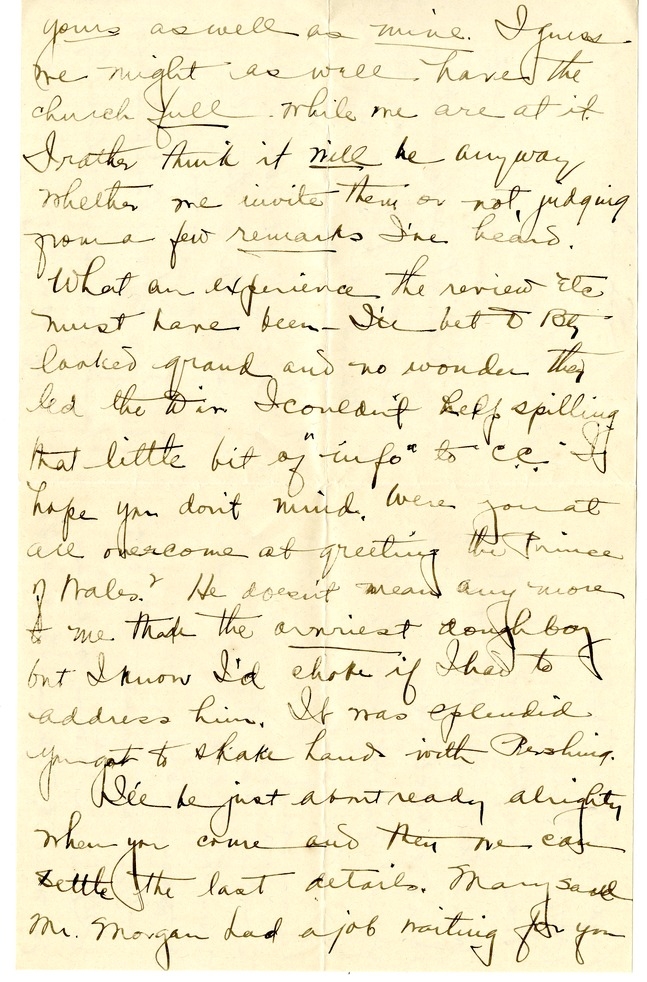 yours as well as mine. I guess
we might as well have the
church full while we are at it
I rather think it will be anyway
whether we invite them or not, judging
from a few remarks I've heard.
What an experience the review etc
must have been - I'll bet D Bty
looked grand and no wonder they
led the Div. I couldn't help spilling
that little bit of "info" to "C.C." I
hope you don't mind. Were you at
all overcome at greeting the Prince
of Wales? He doesn't mean any more
to me than the ornriest doughboy
but I know I'd choke if I had to
address him. It was splendid
you got to shake hands with Pershing.
I'll be just about ready alrighty
when you come and then we can
settle the last details. Mary said
Mr. Morgan had a job waiting for you